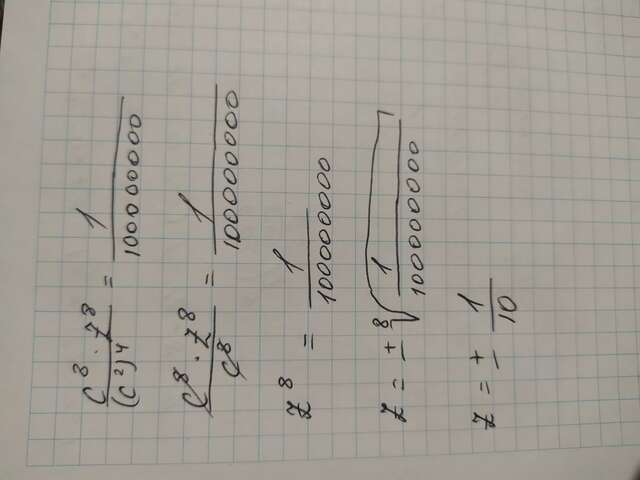 c⁸ · z⁸ / (c²)⁴ = 1 / 100000000
c⁸ · z⁸ / c⁸ = 1 / 100000000
z⁸ = 1 / 100000000
z = ± ⁸√(1 / 100000000)
z = ± 1 / 10